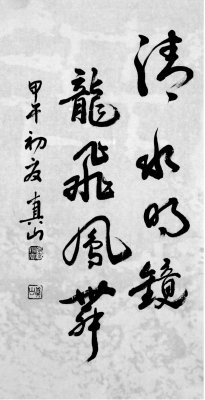 清水明鏡
龍飛鳳舞
甲午初夏真山